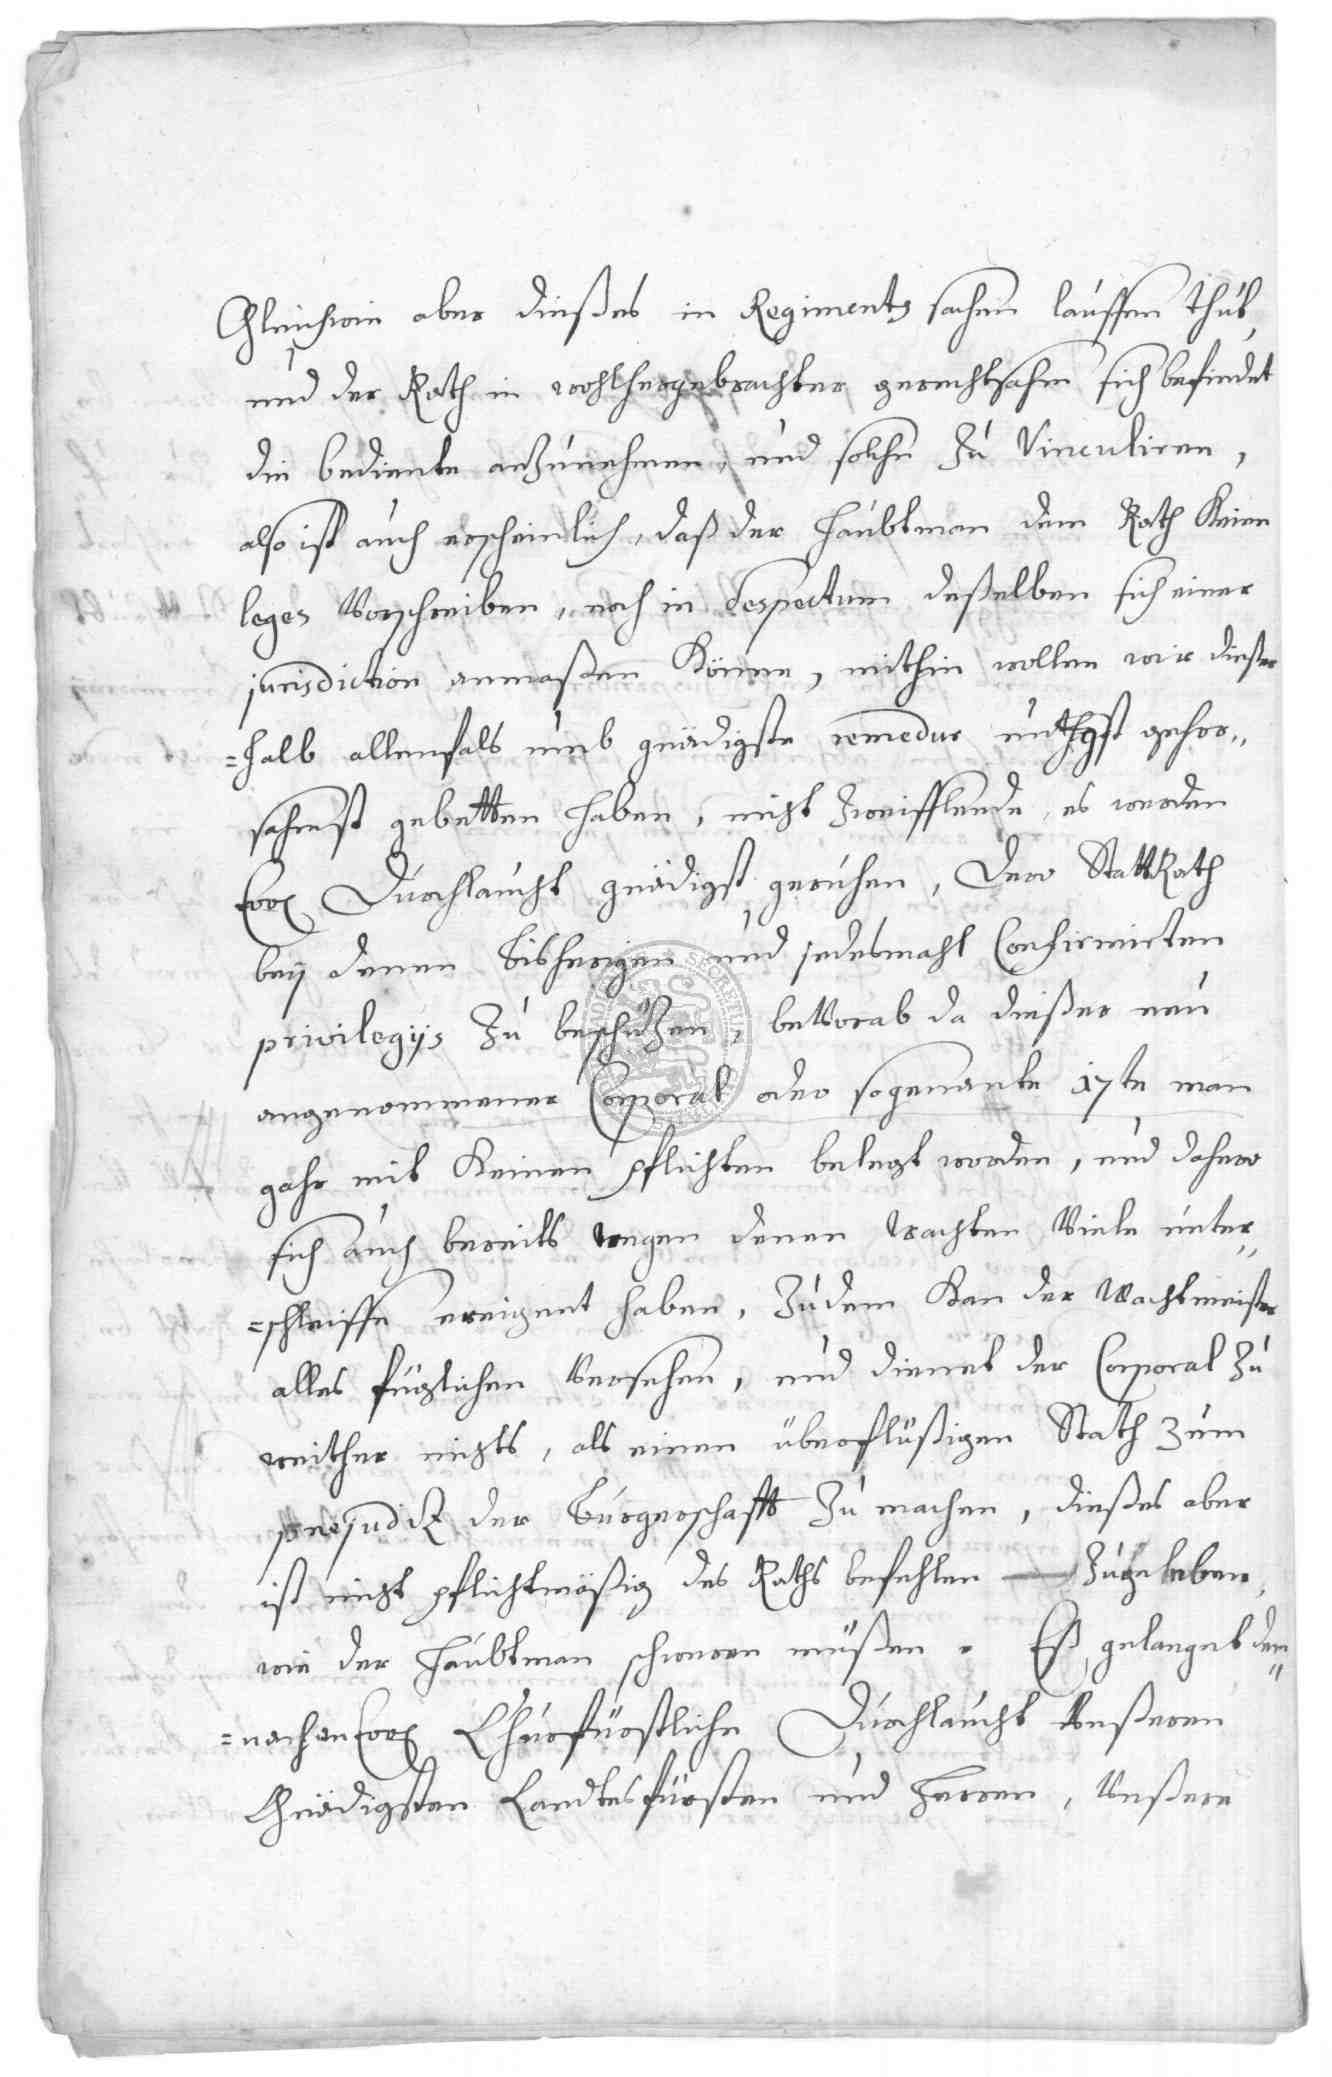 Gleichwie aber dießes in Regiments sachen lauffen thut,
und der Rath in wohlhergebrachter gerechtsahm sich befindet
die bediente anzunehmen, und solche zu Vinculiren,
also ist auch erscheinlich, daß der Haubtman dem Rath keine
leges Vorschreiben, noch in despectum deßelben sich einer
jurisdiction anmaßen könne, mithin wollen wir dießer
=halb allenfals umb gnädigste remedur unthgst gehor„
sahmst gebetten haben, nicht zweifflende, es werden
Ewr Durchlaucht gnädigst geruhen, Dero StattRath
bey denen bisherigen und jedesmahl Confirmirten
privilegijs zu beschützen, beVorab da dießer neu
angenommener Corporal oder sogenante 17te man
gahr mit keinen pflichten belegt worden, und dahero
sich auch bereits wegen denen wachten Viele unter„
=schleiffe ereignet haben, zudem kan der Wachtmeister
alles füglichen Versehen, und dienet der Corporal zu
weither nichts, als einen überflüßigen Stath zum
praejuditz der Burgerschafft zu machen, dießes aber
ist nicht pflichtmäßig des Raths befehlen — zugeleben,
wie der Haubtman schweren müßen. Eß gelanget dem„
=nach an Ewr Churfürstliche Durchlaucht Unßeren
Gnädigsten Landtesfürsten und Herren, Unßere